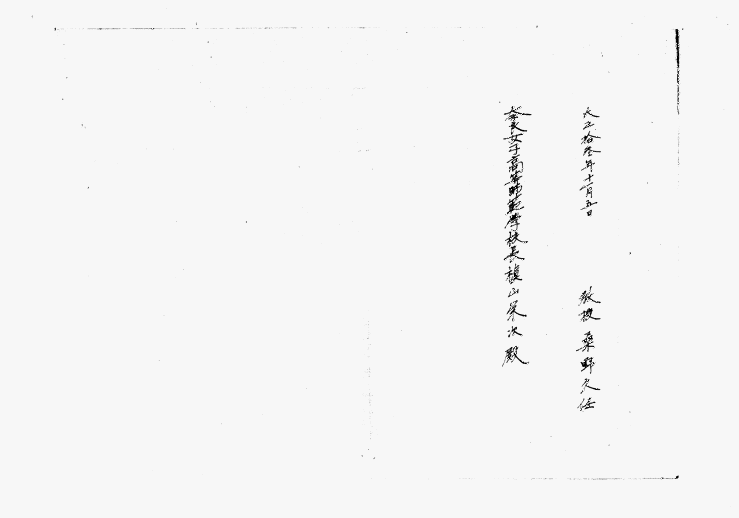 大正拾参年十一月五日
教授 桑野久任
奈良女子高等師範學校長槇山榮次殿